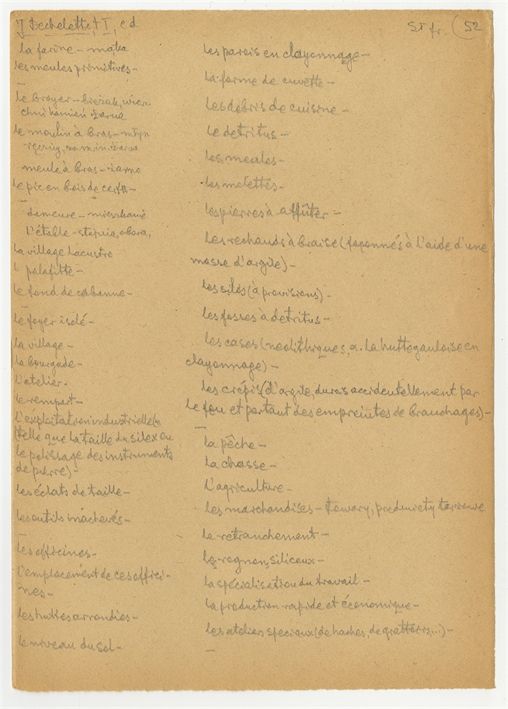 J. Dechelette, t I, c d.
St. fr. 52
la farine - mąka
les meules primitives -
le broyer -
chuchamien żarna
le moulin à bras - młyn
ręczny,
meule à bras - żarno
le pic en bois de cerf -
demeure - mieszkanie
l'étable - stajnia, obora,
la village lacustre
palafitte -
le fond de cabanne -
le foyer isolé -
la village -
la bourgade -
l'atelier -
le rempart -
l'exploitation industrielle
(telle que la taille du silex ou
le polissage des instruments
de pierre) -
les éclats de taille -
les outils inachevés -
les officines -
l'emplacement de ces offici-
nes -
les huttes arrondies -
le niveau du sol -
les parois en clayonnage -
la forme de cuvette -
les débris de cuisine -
le détritus -
les meules -
les molettes -
les pierres à affûter -
les réchauds à braise (façonnés à l'aide d'une
masse d'argile) -
les silos (à provisions) -
les fosses à détritus -
les cases (néolithiques, la hutte gauloise en
clayonnage) -
les crépis (d'argile, durcis accidentellement par
le feu et portant des empreintes de branchages) -
la pêche -
la chasse -
l'agriculture -
les marchandises - towary, produkty
le retranchement -
les rognons siliceux -
la spécialisation du travail -
la production rapide et économique -
les ateliers spéciaux (de haches, de grattoirs, ...) -